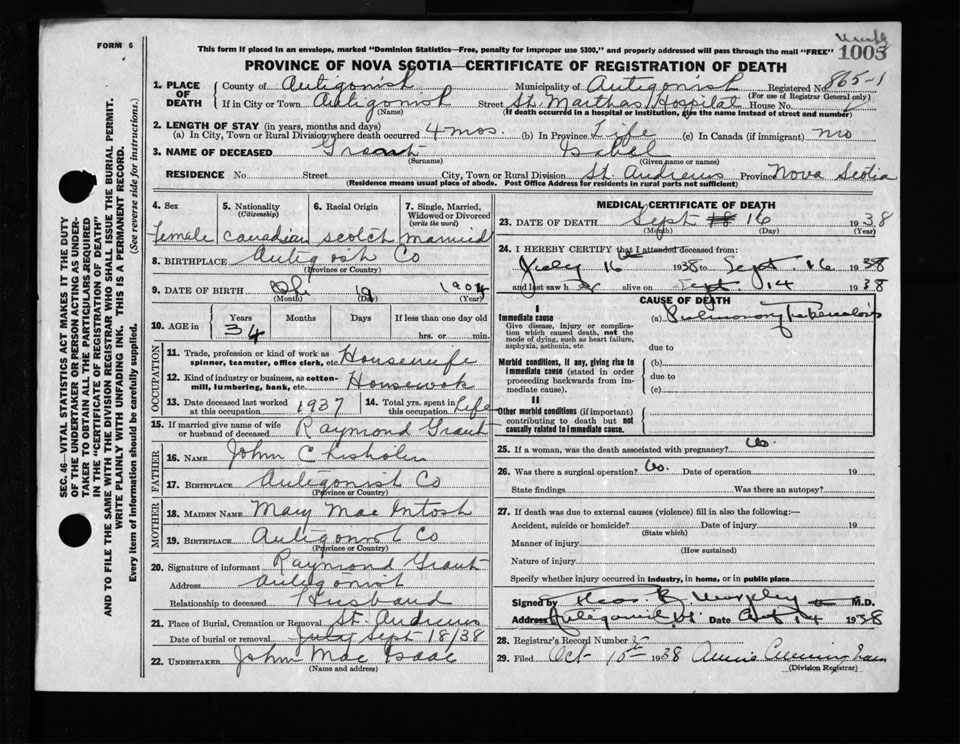 FORM 6
1005
This form if placed in an envelope, marked "Dominion Statistics—Free, penalty for improper use $300," and properly addressed will pass through the mail "FREE"
PROVINCE OF NOVA SCOTIA—CERTIFICATE OF REGISTRATION OF DEATH
1. PLACE OF DEATH County of Antigonish Municipality of Antigonish Registered No. 865-1
(For use of Registrar General only)
If in City or Town Antigonish Street St. Marthas Hospital House No.
(Name) (If death occurred in a hospital or institution, give the name instead of street and number)
2. LENGTH OF STAY (in years, months and days)
(a) In City, Town or Rural Division where death occurred 4 mos. (b) In Province Life (c) In Canada (if immigrant) no
3. NAME OF DECEASED Grant Isabel
(Surname) (Given name or names)
RESIDENCE No. Street City, Town or Rural Division St. Andrews Province Nova Scotia
(Residence means usual place of abode. Post Office Address for residents in rural parts not sufficient)
4. Sex 5. Nationality (Citizenship) 6. Racial Origin 7. Single, Married, Widowed or Divorced (write the word)
female Canadian scotch married
8. BIRTHPLACE Antigosh Co
(Province or Country)
9. DATE OF BIRTH 19 1904
(Month) (Day) (Year)
10. AGE in Years Months Days If less than one day old
34 hrs. or min.
OCCUPATION
11. Trade, profession or kind of work as spinner, teamster, office clerk, etc. Housewife
12. Kind of industry or business, as cotton-mill, lumbering, bank, etc. Housewok
13. Date deceased last worked at this occupation 1937 14. Total yrs. spent in this occupation Life
15. If married give name of wife or husband of deceased Raymond Grant
FATHER
16. NAME John Chisholm
17. BIRTHPLACE Antigonist Co
(Province or Country)
MOTHER
18. MAIDEN NAME Mary Mac Intosh
19. BIRTHPLACE Antigonist Co
(Province or Country)
20. Signature of informant Raymond Grant
Address Antigonist
Relationship to deceased Husband
21. Place of Burial, Cremation or Removal St. Andrews
Date of burial or removal July Sept 18/38
22. UNDERTAKER John Mac Isaac
(Name and address)
MEDICAL CERTIFICATE OF DEATH
23. DATE OF DEATH Sept 18 16 1938
(Month) (Day) (Year)
24. I HEREBY CERTIFY that I attended deceased from:
July 16th 1938 to Sept. 16 1938
and last saw her alive on Sept 14 1938
CAUSE OF DEATH
I
Immediate cause (a) Pulmonary Tuberculosis
Give disease, injury or complication which caused death, not the mode of dying, such as heart failure, asphyxia, asthenia, etc.
due to
Morbid conditions, if any, giving rise to immediate cause (stated in order proceeding backwards from immediate cause).
(b)
due to
(c)
II
Other morbid conditions (if important) contributing to death but not causally related to immediate cause.
25. If a woman, was the death associated with pregnancy? No.
26. Was there a surgical operation? No. Date of operation 19
State findings Was there an autopsy?
27. If death was due to external causes (violence) fill in also the following:—
Accident, suicide or homicide? Date of injury 19
(State which)
Manner of injury
(How sustained)
Nature of injury
Specify whether injury occurred in industry, in home, or in public place
Signed by M.D.
Address Antigonish Date 14 1938
28. Registrar's Record Number
29. Filed Oct 15 1938 Annie Cunningham
(Division Registrar)
SEC. 46—VITAL STATISTICS ACT MAKES IT THE DUTY
OF THE UNDERTAKER OR PERSON ACTING AS UNDER-
TAKER TO OBTAIN ALL THE PARTICULARS REQUIRED
IN THE "CERTIFICATE OF REGISTRATION OF DEATH"
AND TO FILE THE SAME WITH THE DIVISION REGISTRAR WHO SHALL ISSUE THE BURIAL PERMIT.
WRITE PLAINLY WITH UNFADING INK. THIS IS A PERMANENT RECORD.
Every item of information should be carefully supplied. (See reverse side for instructions.)